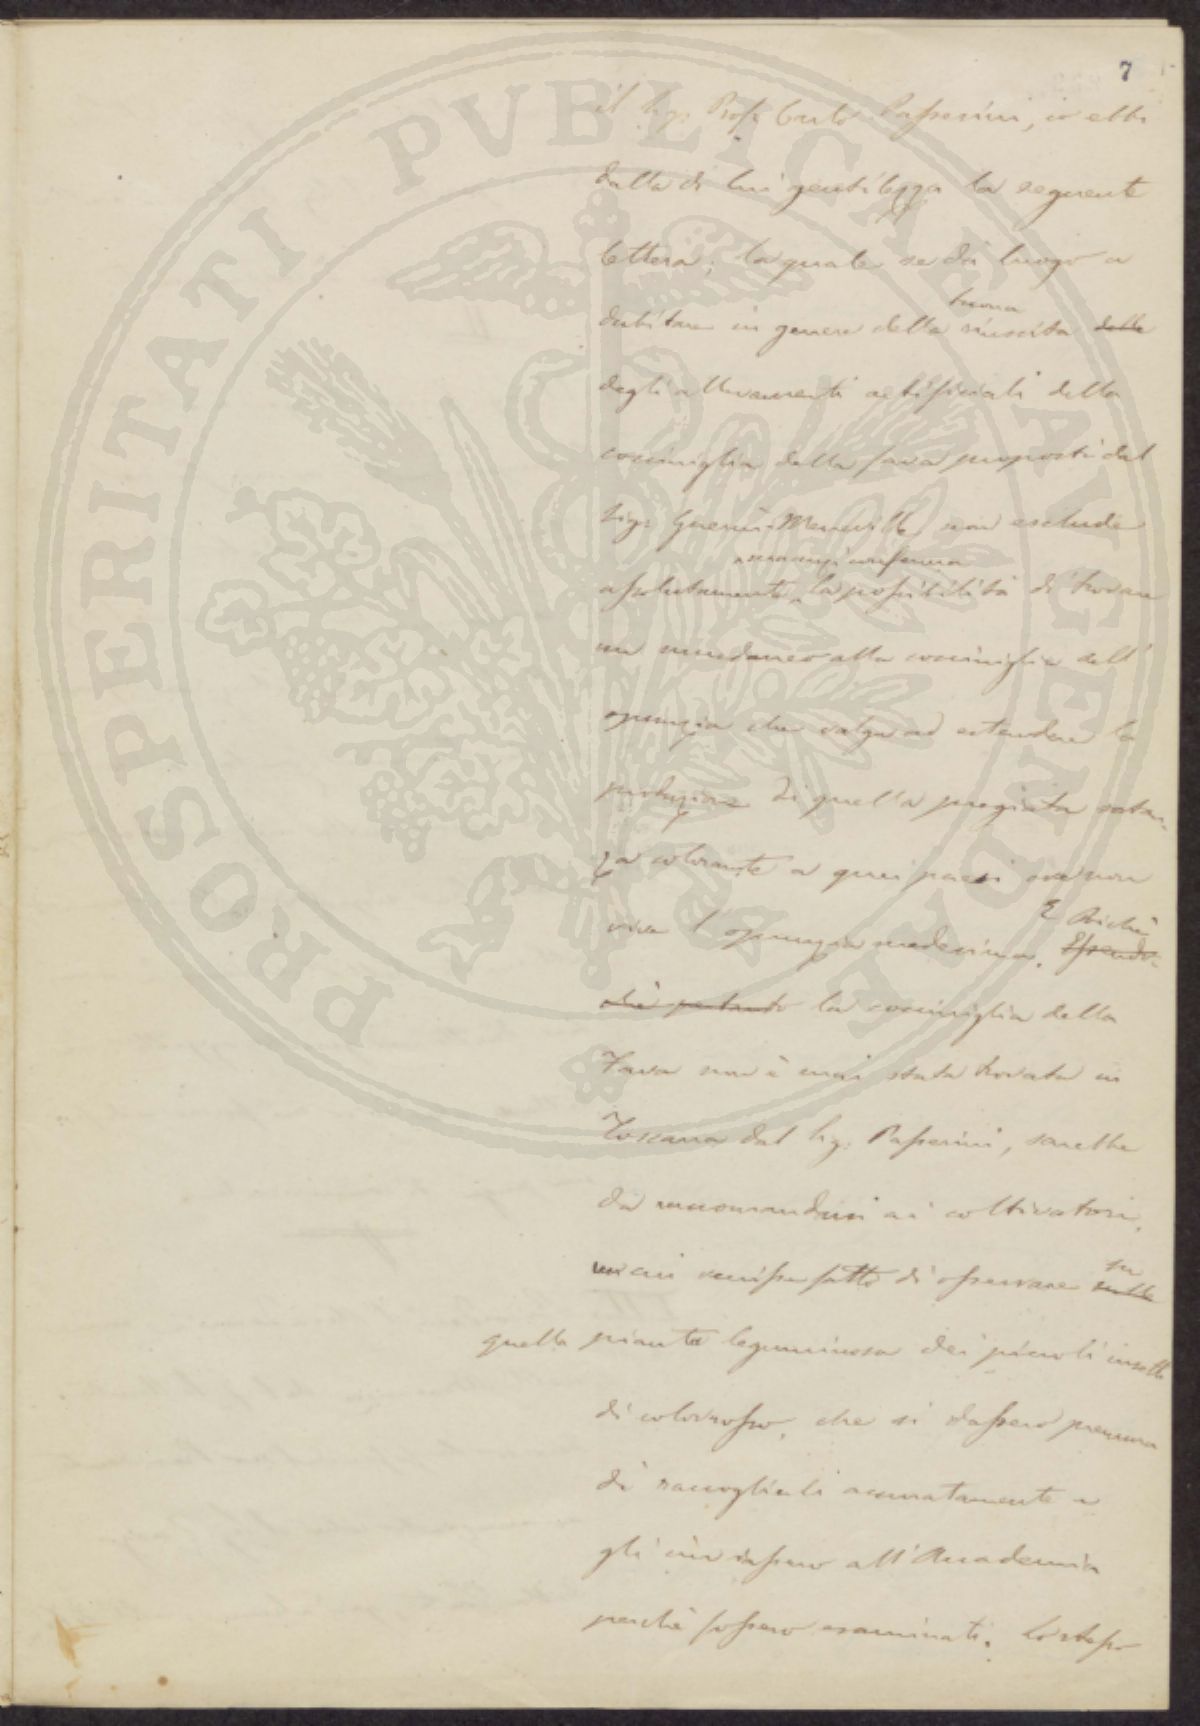 7
il Sig: Prof: Carlo Passerini, io ebbi
dalla di lui gentilezza la seguente
lettera; la quale se dà luogo a
buona
dubitare in genere della riuscita delle
degli allevamenti artificiali della
cocciniglia della fava proposti dal
Sig: Guerin-Meneville, non esclude
anzi conferma
assolutamente, la possibilità di trovare
un succedaneo alla cocciniglia dell'
opunzia che valga ad estendere la
produzione di quella pregiata sostan-
za colorante a quei paesi ove non
E Poichè
vive l'opunzia medesima. Essendo-
chè pertanto la cocciniglia della
Fava non è mai stata trovata in
Toscana dal Sig: Passerini, sarebbe
da raccomandarsi ai coltivatori,
cui venisse fatto di osservare sulle
su
quella pianta leguminosa dei piccoli insetti
di color rosso, che si dassero premura
di raccoglierli accuratamente e
gli inviassero all'Accademia
perchè fossero esaminati. Lo stesso
PROSPERITATI PVBLICAE AVGENDAE